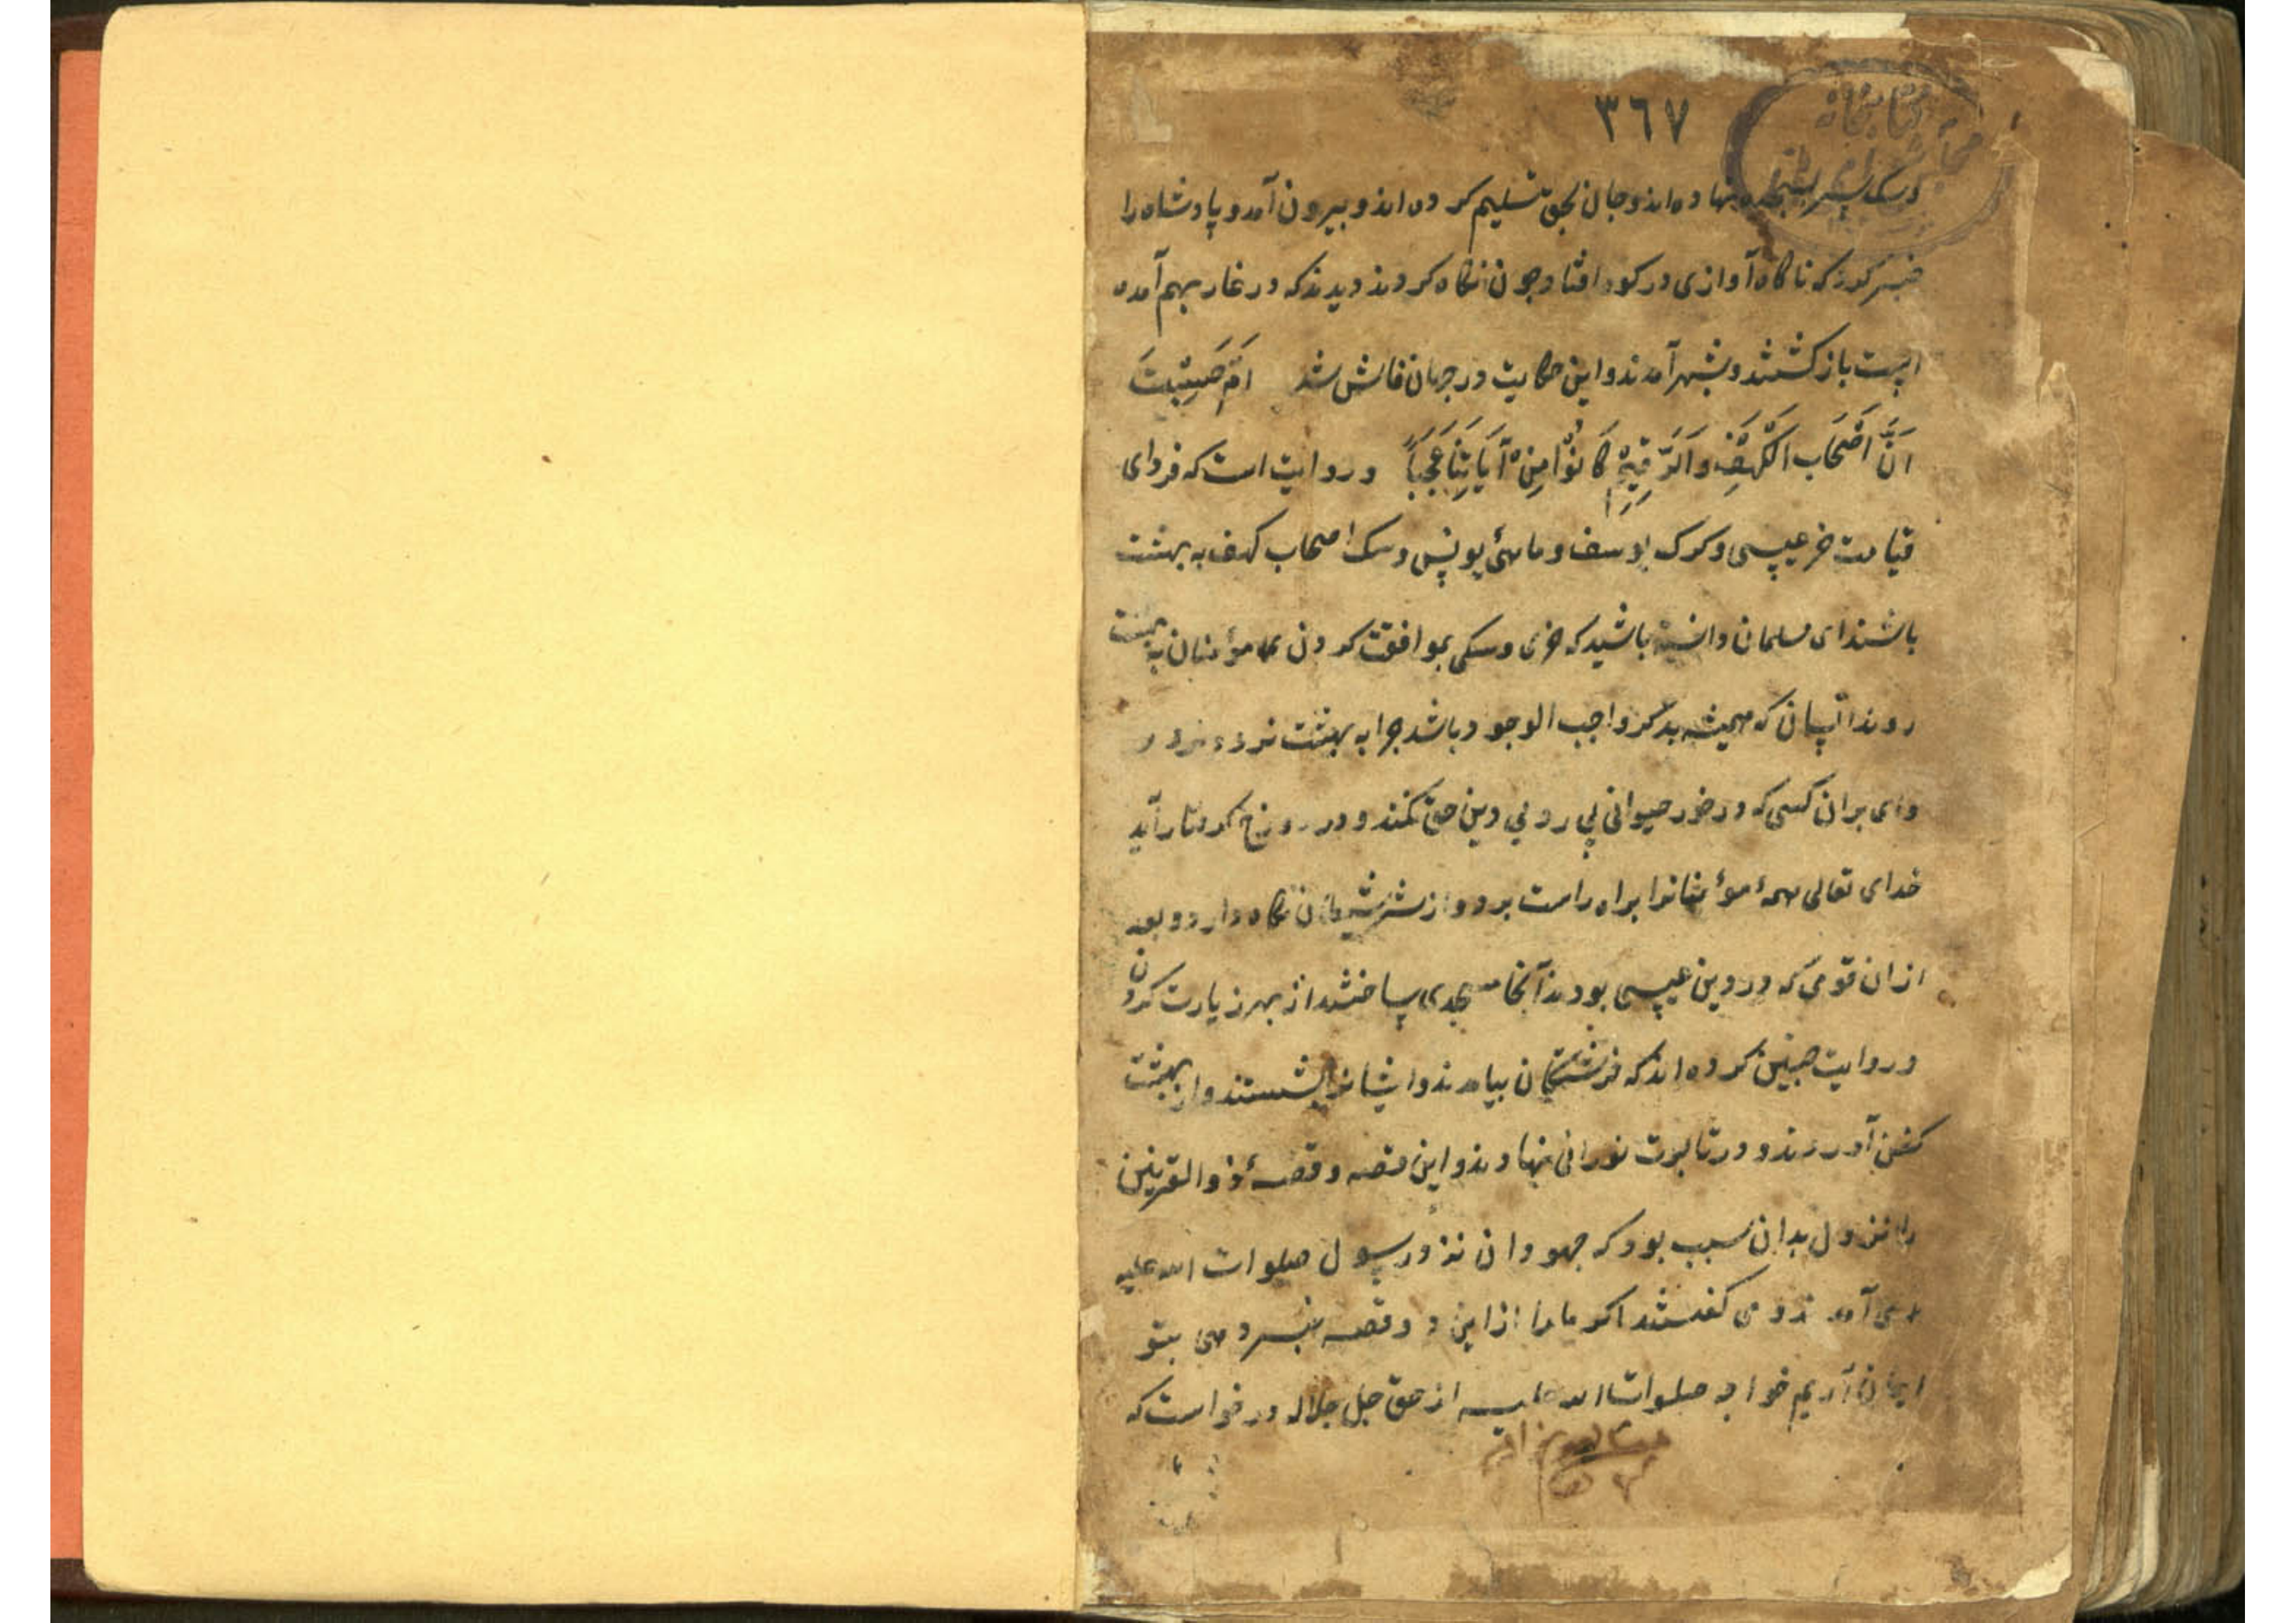 کتابخانه
۳٦٧
وسک سر بسجده نهاده اند و جان بحق تسلیم کرده اند و بیرون آمد و پادشاه را
خبر کرد که ناکاه آوازی در کوه افتاد چون نکاه کردند دیدند که در غار بهم آمده
است باز کشتند و بشهر آمدند و این حکایت در جهان فاش شد اَمْ حَسِبْتَ
اَنَّ اَصْحَابَ الْکَهْفِ وَالرَّقِیْمِ کَانُوْا مِنْ آیَاتِنَا عَجَبَاً و روایت است که فردای
قیامت خر عیسی و کرک یوسف و ماهئ یونس و سک اصحاب کهف به بهشت
باشند ای مسلمان دانسته باشید که خری و سکی بموافقت کردن با مؤمنان به بهشت
روند انسان که همیشه بذکر واجب الوجود باشد چرا به بهشت نرود
وای بران کسی که در خور حیوانی پی روئی دین حق نکند و در دوزخ کرفتار آید
خدای تعالی همهٔ مؤمنانرا براه راست برد و از شر شیطان نکاه دارد و بعد
ازان قومی که در دین عیسی بودند آنجا مسجدی ساختند از بهر زیارت کردن
و روایت چنین کرده اند که فرشتکان بیامدند و ایشانرا بشستند و از بهشت
کفن آوردند و در تابوت نورانی نهادند و این قصه و قصهٔ ذوالقرنین
را نزول بدان سبب بود که جهودان نزد رسول صلوات الله علیه
می آمدند و می کفتند اکر ما را از این دو قصه خبر دهی بتو
ایمان آریم خواجه صلوات الله علیه از حق جل جلاله درخواست که